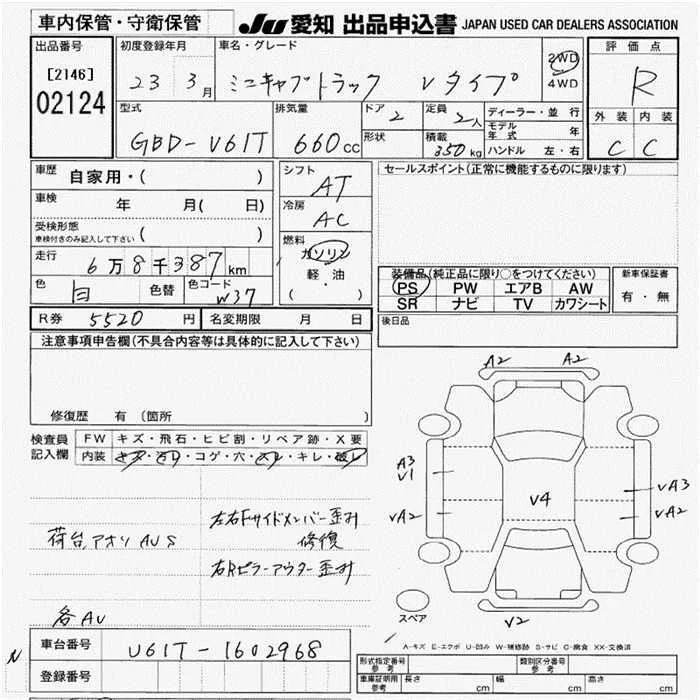 車内保管・守衛保管 JU 愛知 出品申込書 JAPAN USED CAR DEALERS ASSOCIATION
出品番号 [2146] 02124
初度登録年月 23 3月
車名・グレード ミニキャブトラック Vタイプ 2WD 4WD
評価点 R
外装 内装
C C
型式 GBD-V61T
排気量 660cc
ドア 2
形状
定員 2人
積載 350kg
ディーラー・並行
モデル年式 年
ハンドル 左・右
車歴 自家用・( )
車検 年 月( 日)
受検形態 車検付きのみ記入して下さい ( )
走行 6万8千387km
色 白 色替 色コード W37
シフト AT
冷房 AC
燃料 ガソリン
軽・油
( ・ )
セールスポイント(正常に機能するものに限ります)
装備品(純正品に限り○をつけてください)
PS PW エアB AW
SR ナビ TV カワシート
新車保証書
有・無
後日品
R券 5520円 名変期限 月 日
注意事項申告欄(不具合内容等は具体的に記入して下さい)
修復歴 有(箇所 )
検査員記入欄
FW キズ・飛石・ヒビ割・リペア跡・X要
内装 キズ・汚レ・コゲ・穴・スレ・キレ・破レ
左右Fサイドメンバー歪み
修復
荷台アオリAUS
右Rピラーアウター歪み
各AU
A2 A2
A3
V1
V4
VA3
VA2 VA2
V2
スペア
A-キズ E-エクボ U-凹み W-補修跡 S-サビ C-腐食 XX-交換済
N 車台番号 U61T-1602968
登録番号
形式指定番号 参考 類別区分番号 参考
車庫証明用 参考 長さ cm 幅 cm 高さ cm